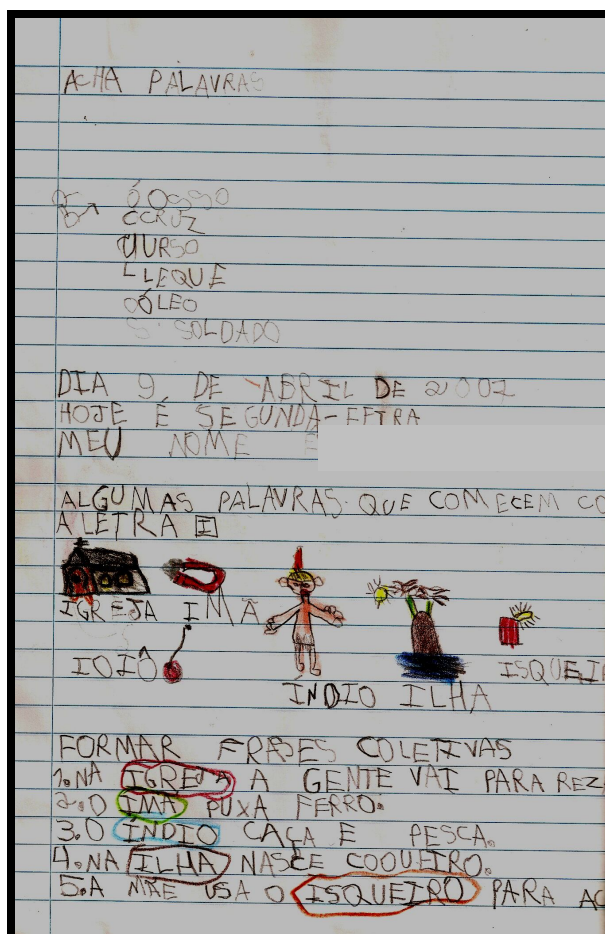 ACHA PALAVRAS
Ó OSSO
C CRUZ
U URSO
L LEQUE
O ÓLEO
S SOLDADO
DIA 9 DE ABRIL DE 2007
HOJE É SEGUNDA-FEIRA
MEU NOME É
ALGUMAS PALAVRAS QUE COMECEM CO
A LETRA I
IGREJA IMÃ
IOIÔ ISQUEI
ÍNDIO ILHA
FORMAR FRASES COLETIVAS
1. NA IGREJA A GENTE VAI PARA REZ
2. O IMÃ PUXA FERRO.
3. O ÍNDIO CAÇA E PESCA.
4. NA ILHA NASCE COQUEIRO.
5. A MÃE USA O ISQUEIRO PARA AC